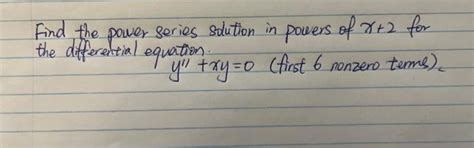 Find the power series solution in powers of x+2 for
the differential equation.
y'' + xy = 0 (first 6 nonzero terms).